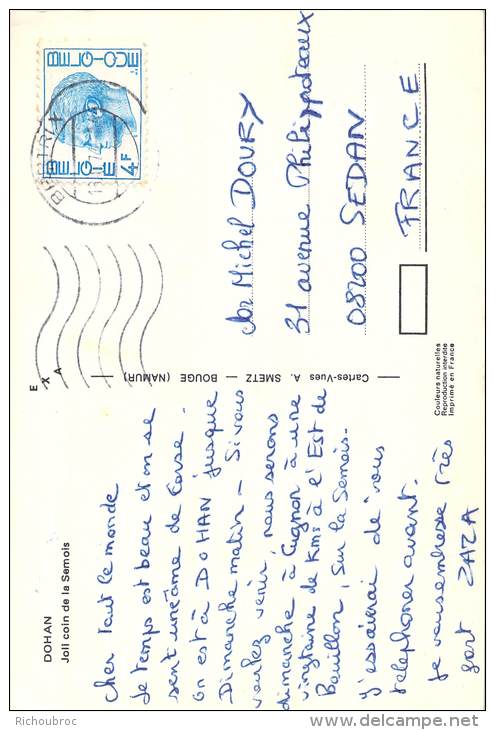 DOHAN
Joli coin de la Semois
Cher tout le monde
Le temps est beau et on se
sent une âme de Corse.
On est à DOHAN jusque
Dimanche matin - Si vous
voulez venir, nous serons
dimanche à Cugnon à une
vingtaine de Kms à l'Est de
Bouillon, sur la Semois.
J'essairai de vous
telephoner avant.
Je vous embrasse très
fort ZAZA
Cartes-Vues A. SMETZ — BOUGE (NAMUR)
E X A
BERTRIX
BELGIQUE
BELGIE
4F
Michel DOURY
31 avenue Philippoteaux
08200 SEDAN
FRANCE
Couleurs naturelles
Reproduction interdite
Imprimé en France
Copyright © Richoubroc
www.delcampe.net